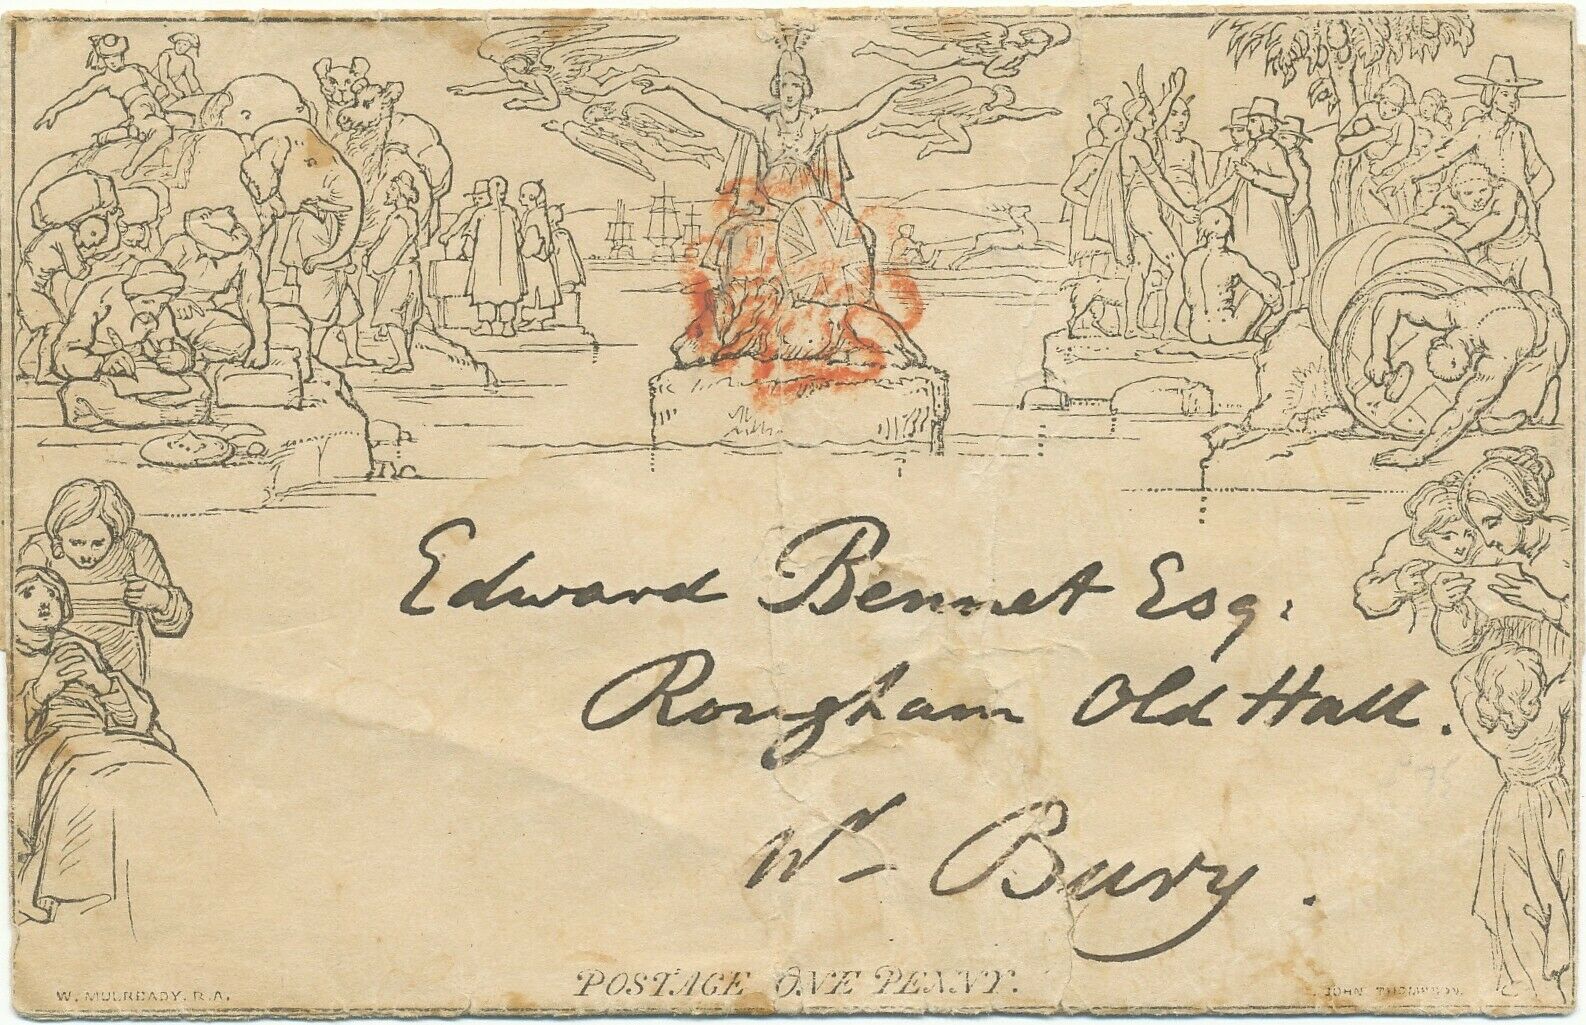 Edward Bennet Esq:
Rougham Old Hall.
Nr Bury.
POSTAGE ONE PENNY.
W. MULREADY. R.A.
JOHN THOMPSON.